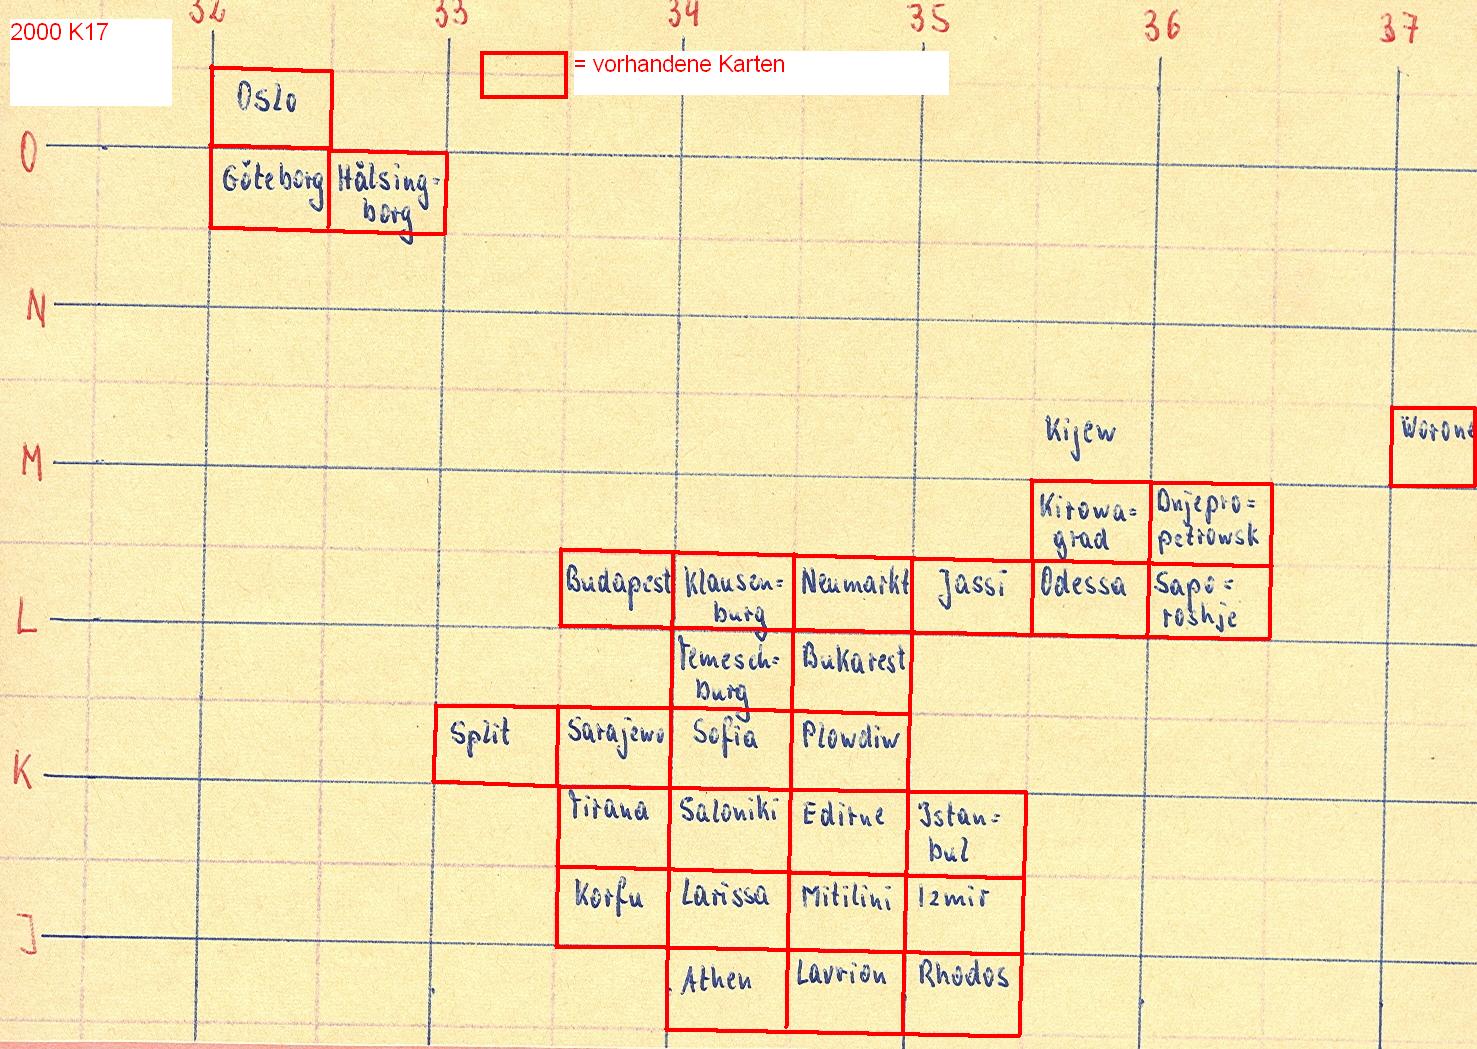 32 33 34 35 36 37
2000 K17
= vorhandene Karten
Oslo
O
Göteborg Hälsing=
borg
N
Kijew Worone
M
Kirowa= Dnjepro=
grad petrowsk
Budapest Klausen= Neumarkt Jassi Odessa Sapo=
burg roshje
L
Temesch= Bukarest
burg
Split Sarajewo Sofia Plowdiw
K
Tirana Saloniki Edirne Istan=
bul
Korfu Larissa Mitilini Izmir
J
Athen Lavrion Rhodos